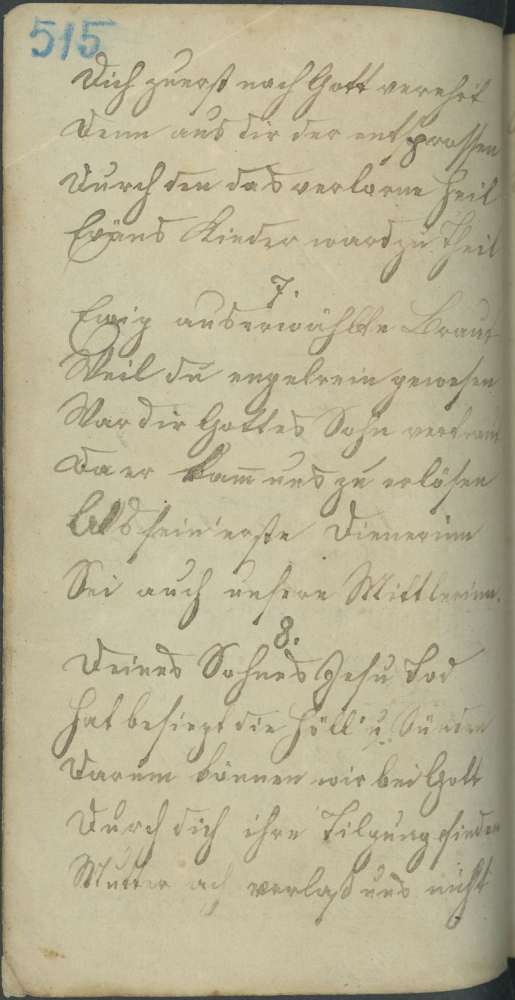 515
Dich zuerst nach Gott verehrt
Denn aus dir der entsprossen
Durch den das verlorne Heil
Eväns Kinder ward zu Theil
7.
Ewig auserwählte Braut
Weil du engelrein gewesen
War dir Gottes Sohn vertraut
Da er kam̅ uns zu erlösen
Als sein' erste Dienerinn
Sei auch unsere Mittlerinn.
8.
Deines Sohnes Jesu Tod
Hat besiegt die Höll' u Sünden
Darum können wir bei Gott
Durch dich ihre Tilgung finden
Mutter ach verlaß uns nicht